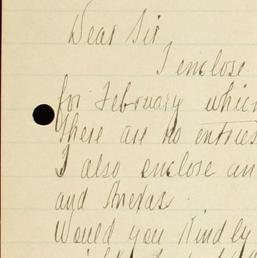 Dear Sir
I enclose
for February which
there are no entries
I also enclose an
and Annexa
Would you Kindly